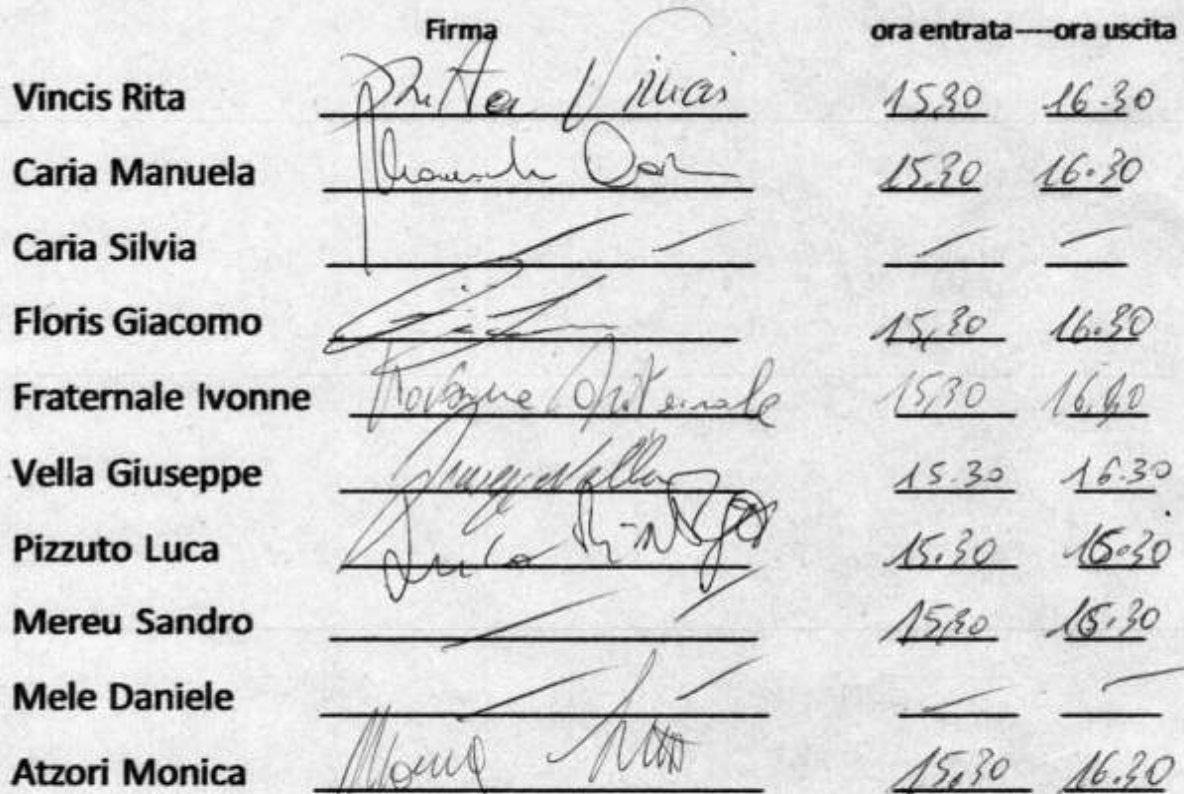 Firma ora entrata----ora uscita
Vincis Rita Rita Vincis 15,30 16.30
Caria Manuela Manuela 15.30 16.30
Caria Silvia
Floris Giacomo 15,30 16.30
Fraternale Ivonne 15,30
Vella Giuseppe Giuseppe Vella 15.30 16.30
Pizzuto Luca Luca 15.30 16.30
Mereu Sandro 15,30 16.30
Mele Daniele
Atzori Monica Monica 15,30 16.30